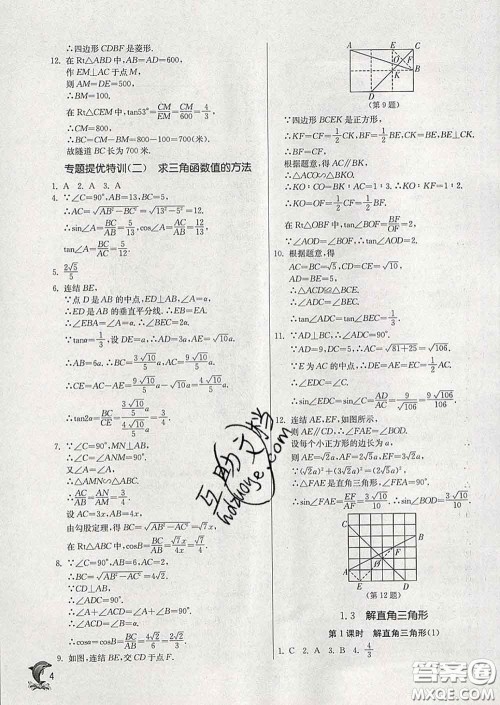 ∴四边形 CDBF 是菱形.
12. 在 Rt△ABD 中,AB=AD=600,
作 EM⊥AC 于点 M,
则 AM=DE=500,
∴BM=100.
在 Rt△CEM 中,tan53°=CM/EM=CM/600=4/3,
∴CM=800,
∴BC=CM-BM=800-100=700(米).
故隧道 BC 长为 700 米.
专题提优特训(二) 求三角函数值的方法
1. A 2. A 3. A
4. ∵∠C=90°,AB=13,BC=5,
∴AC=√(AB²-BC²)=√(13²-5²)=12.
∴sin∠A=BC/AB=5/13,cos∠A=AC/AB=12/13,
tan∠A=BC/AC=5/12.
5. 2√5/5
6. 连结 BE,
∵点 D 是 AB 的中点,ED⊥AB,
∴ED 是 AB 的垂直平分线.∴EB=EA.
∴∠EBA=∠A=α.∴∠BEC=2α.
∵tanα=1/3,设 DE=a,∴AD=3a,AE=√10a.
∴AB=6a.∴BC=3√10/5 a,AC=9√10/5 a.
∴CE=AC-AE=9√10/5 a-√10a=4√10/5 a.
∴tan2α=BC/CE=
7. ∵∠C=90°,MN⊥AB,
∴∠C=∠ANM=90°.
又∵∠A=∠A,
∴△AMN∽△ABC.
∴AC/AN=AB/AM=
设 AC=3x,AB=4x,
由勾股定理,得 BC=√(AB²-AC²)=√7x.
在 Rt△ABC 中,cosB=BC/AB=√7x/4x=√7/4.
8. ∵∠C=90°,
∴BC=√(AB²-AC²)=4√2.
∵CD⊥AB,
∴∠ADC=90°.
∴∠A+∠ACD=∠A+∠B=90°.
∴∠ACD=∠B.
∴cosα=cosB=BC/AB=4√2/6=2√2/3.
9. 如图,连结 BE,交 CD 于点 F.
4
A E C
O
F
B
K
D
(第 9 题)
∵四边形 BCEK 是正方形,
∴KF=CF=1/2 CK,BF=1/2 BE,CK=BE,BE⊥CK.
∴BF=CF.
根据题意,得 AC∥BK,
∴△ACO∽△BKO.
∴KO:CO=BK:AC=1:3.
∴KO:KF=1:2.
∴KO=OF=1/2 CF=1/2 BF.
在 Rt△OBF 中,tan∠BOF=BF/OF=2.
∵∠AOD=∠BOF,∴tan∠AOD=2.
10. 根据题意,得
AC=BC=√5,CD=1,
DE=CE=√5,
∴△ACD∽△BCE.
∴∠ADC=∠BEC.
∴tan∠ADC=tan∠BEC=
11. ∵AD⊥BC,∴∠ADC=90°.
∵AD=9,DC=5,∴AC=√(81+25)=√106.
∵E 为 AC 的中点,∴DE=AE=EC=1/2 AC.
∴∠EDC=∠C.
∴sin∠EDC=sin∠C=AD/AC=9/√106=9√106/106.
12. 连结 AE,EF,如图所示,
则 AE∥CD.∴∠FAE=∠BOD.
设每个小正方形的边长为 a,
则 AE=√2a,AF=2√5a,EF=3√2a.
∵(√2a)²+(3√2a)²=(2√5a)²,
∴△FAE 是直角三角形,∠FEA=90°.
∴sin∠FAE=EF/AF=3√2a/2√5a=3√10/10.∴sin∠BOD=3√10/10.
(第 12 题)
1.3 解直角三角形
第 1 课时 解直角三角形(1)
1. C 2. A 3. B 4. 4/3
互助文档
huzuoye.com
答案圈
MXQE.COM